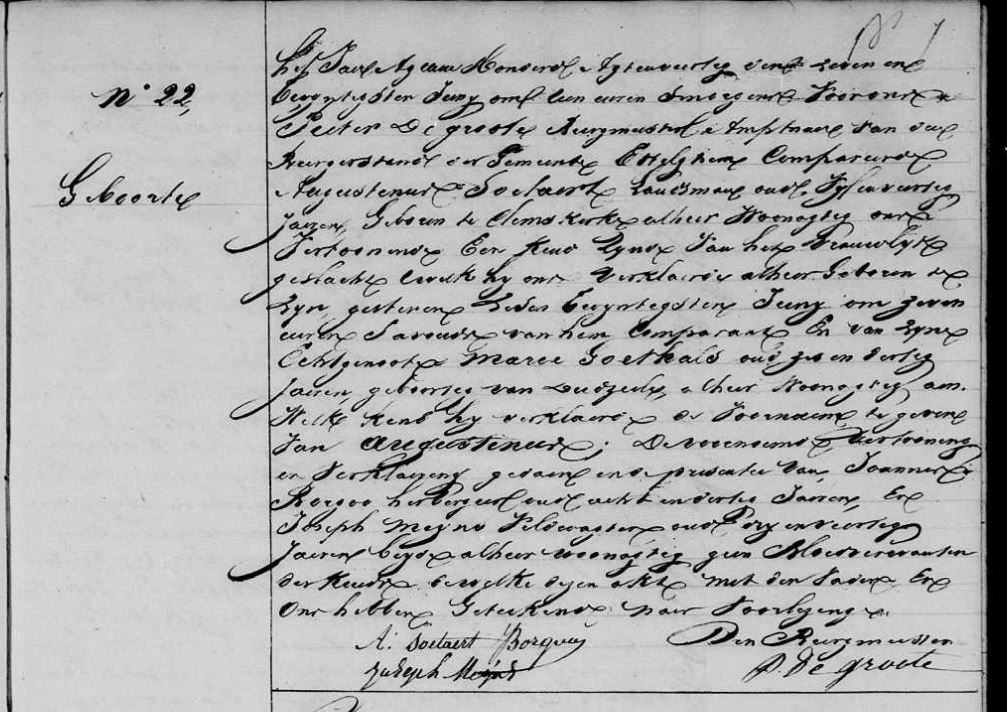 N° 22,
Geboorte
Het Jaer Agtien Honderd Agtenveertig den zeven en
twyntigsten Juny om tien euren Smorgens Voor ons
Peeter De groote Burgmeester Amptnaer van den
Burgerstand der Gemeente Ettelghem Compareerde
Augustenus Soetaert Landsman oud Vyfenveertig
jaeren, Geboren te Clemskerke alhier Woonagtig ons
Vertoonende Een Kind Zynde Van het Vrauwlyk
geslacht welk hy ons Verklaerde alhier Geboren te
Zyn, gisteren zesen twyntigsten Juny om zeven
euren Savonds van hem Comparant En van Zyne
Echtgenoote Marie Goethals oud zes en dertig
Jaeren, geboortig van Dudzeele, alhier Woonagtig aen
Welk Kend hy verklaerde de Voornaem te geven
Van Augustenus; De voorenoemde Vertooning
en Verklaering gedaen in de presentie Van, Joannes
Borgoo herbergier oud acht en dertig Jaeren, En
Joseph Meyns Veldwagter oud Vyfenveertig
Jaeren beyde alhier woonagtig geen Bloedverwanten
der Kinde de welke dezen akt met den Vader En
Ons hebben Geteekend naer Voorlezing.
A: Soetaert Borgooy Den Burgmeester
Joseph Meyns P. De groote